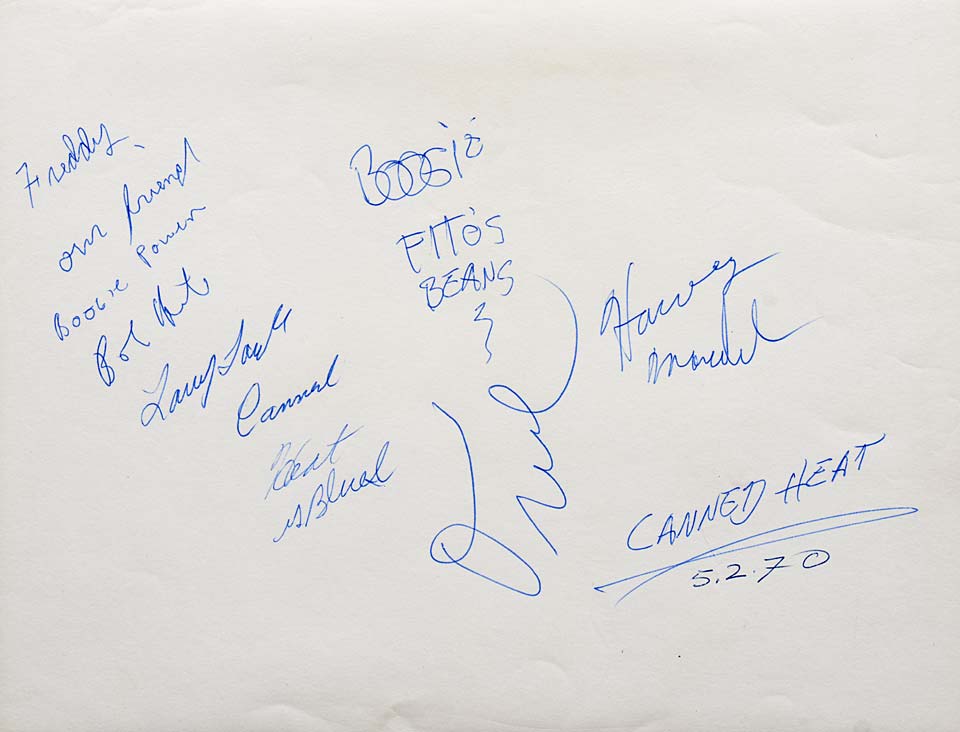 Freddy
our friend
Boogie Power
Bob Hite
Larry
Canned
Heat
is Blued
Boogie
FITO'S
BEANS
Harvey
Mandel
CANNED HEAT
5.2.70